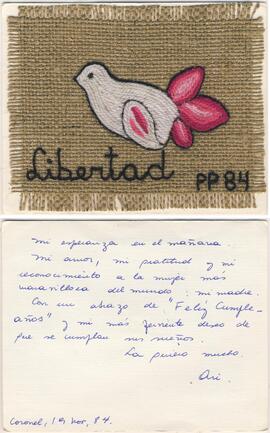 Libertad
PP 84
Mi esperanza en el mañana.
Mi amor, mi gratitud y mi
reconocimiento a la mujer más
maravillosa del mundo: mi madre.
Con un abrazo de "Feliz Cumple-
años" y mi más ferviente deseo de
que se cumplan sus sueños.
La quiero mucho.
Ari.
Coronel, 19 Nov, 84.